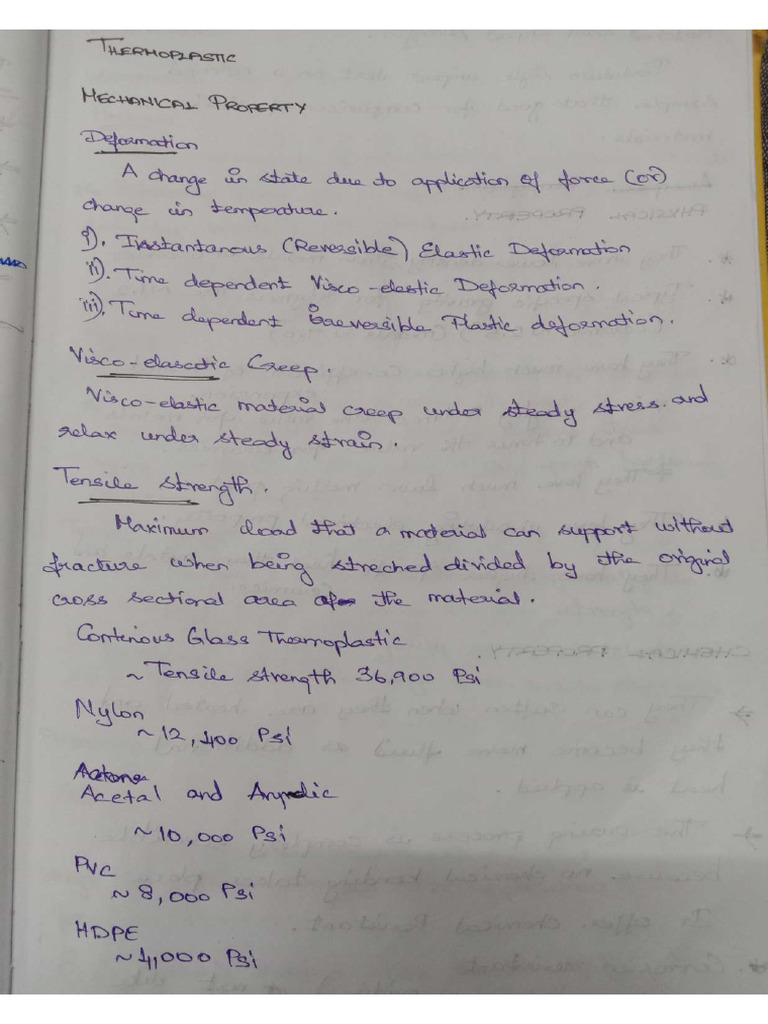 THERMOPLASTIC
MECHANICAL PROPERTY
Deformation
A change in state due to application of force (or)
change in temperature.
i). Instantanous (Reversible) Elastic Deformation
ii). Time dependent Visco-elastic Deformation.
iii). Time dependent irreversible Plastic deformation.
Visco-elascotic Creep.
Visco-elastic material creep under steady stress. and
relax under steady strain.
Tensile strength.
Maximum load that a material can support without
fracture when being streched divided by the original
cross sectional area of the material.
Continous Glass Thermoplastic
~ Tensile strength 36,900 Psi
Nylon
~ 12,400 Psi
Acetal and
~ 10,000 Psi
PVC
~ 8,000 Psi
HDPE
~ 4,000 Psi